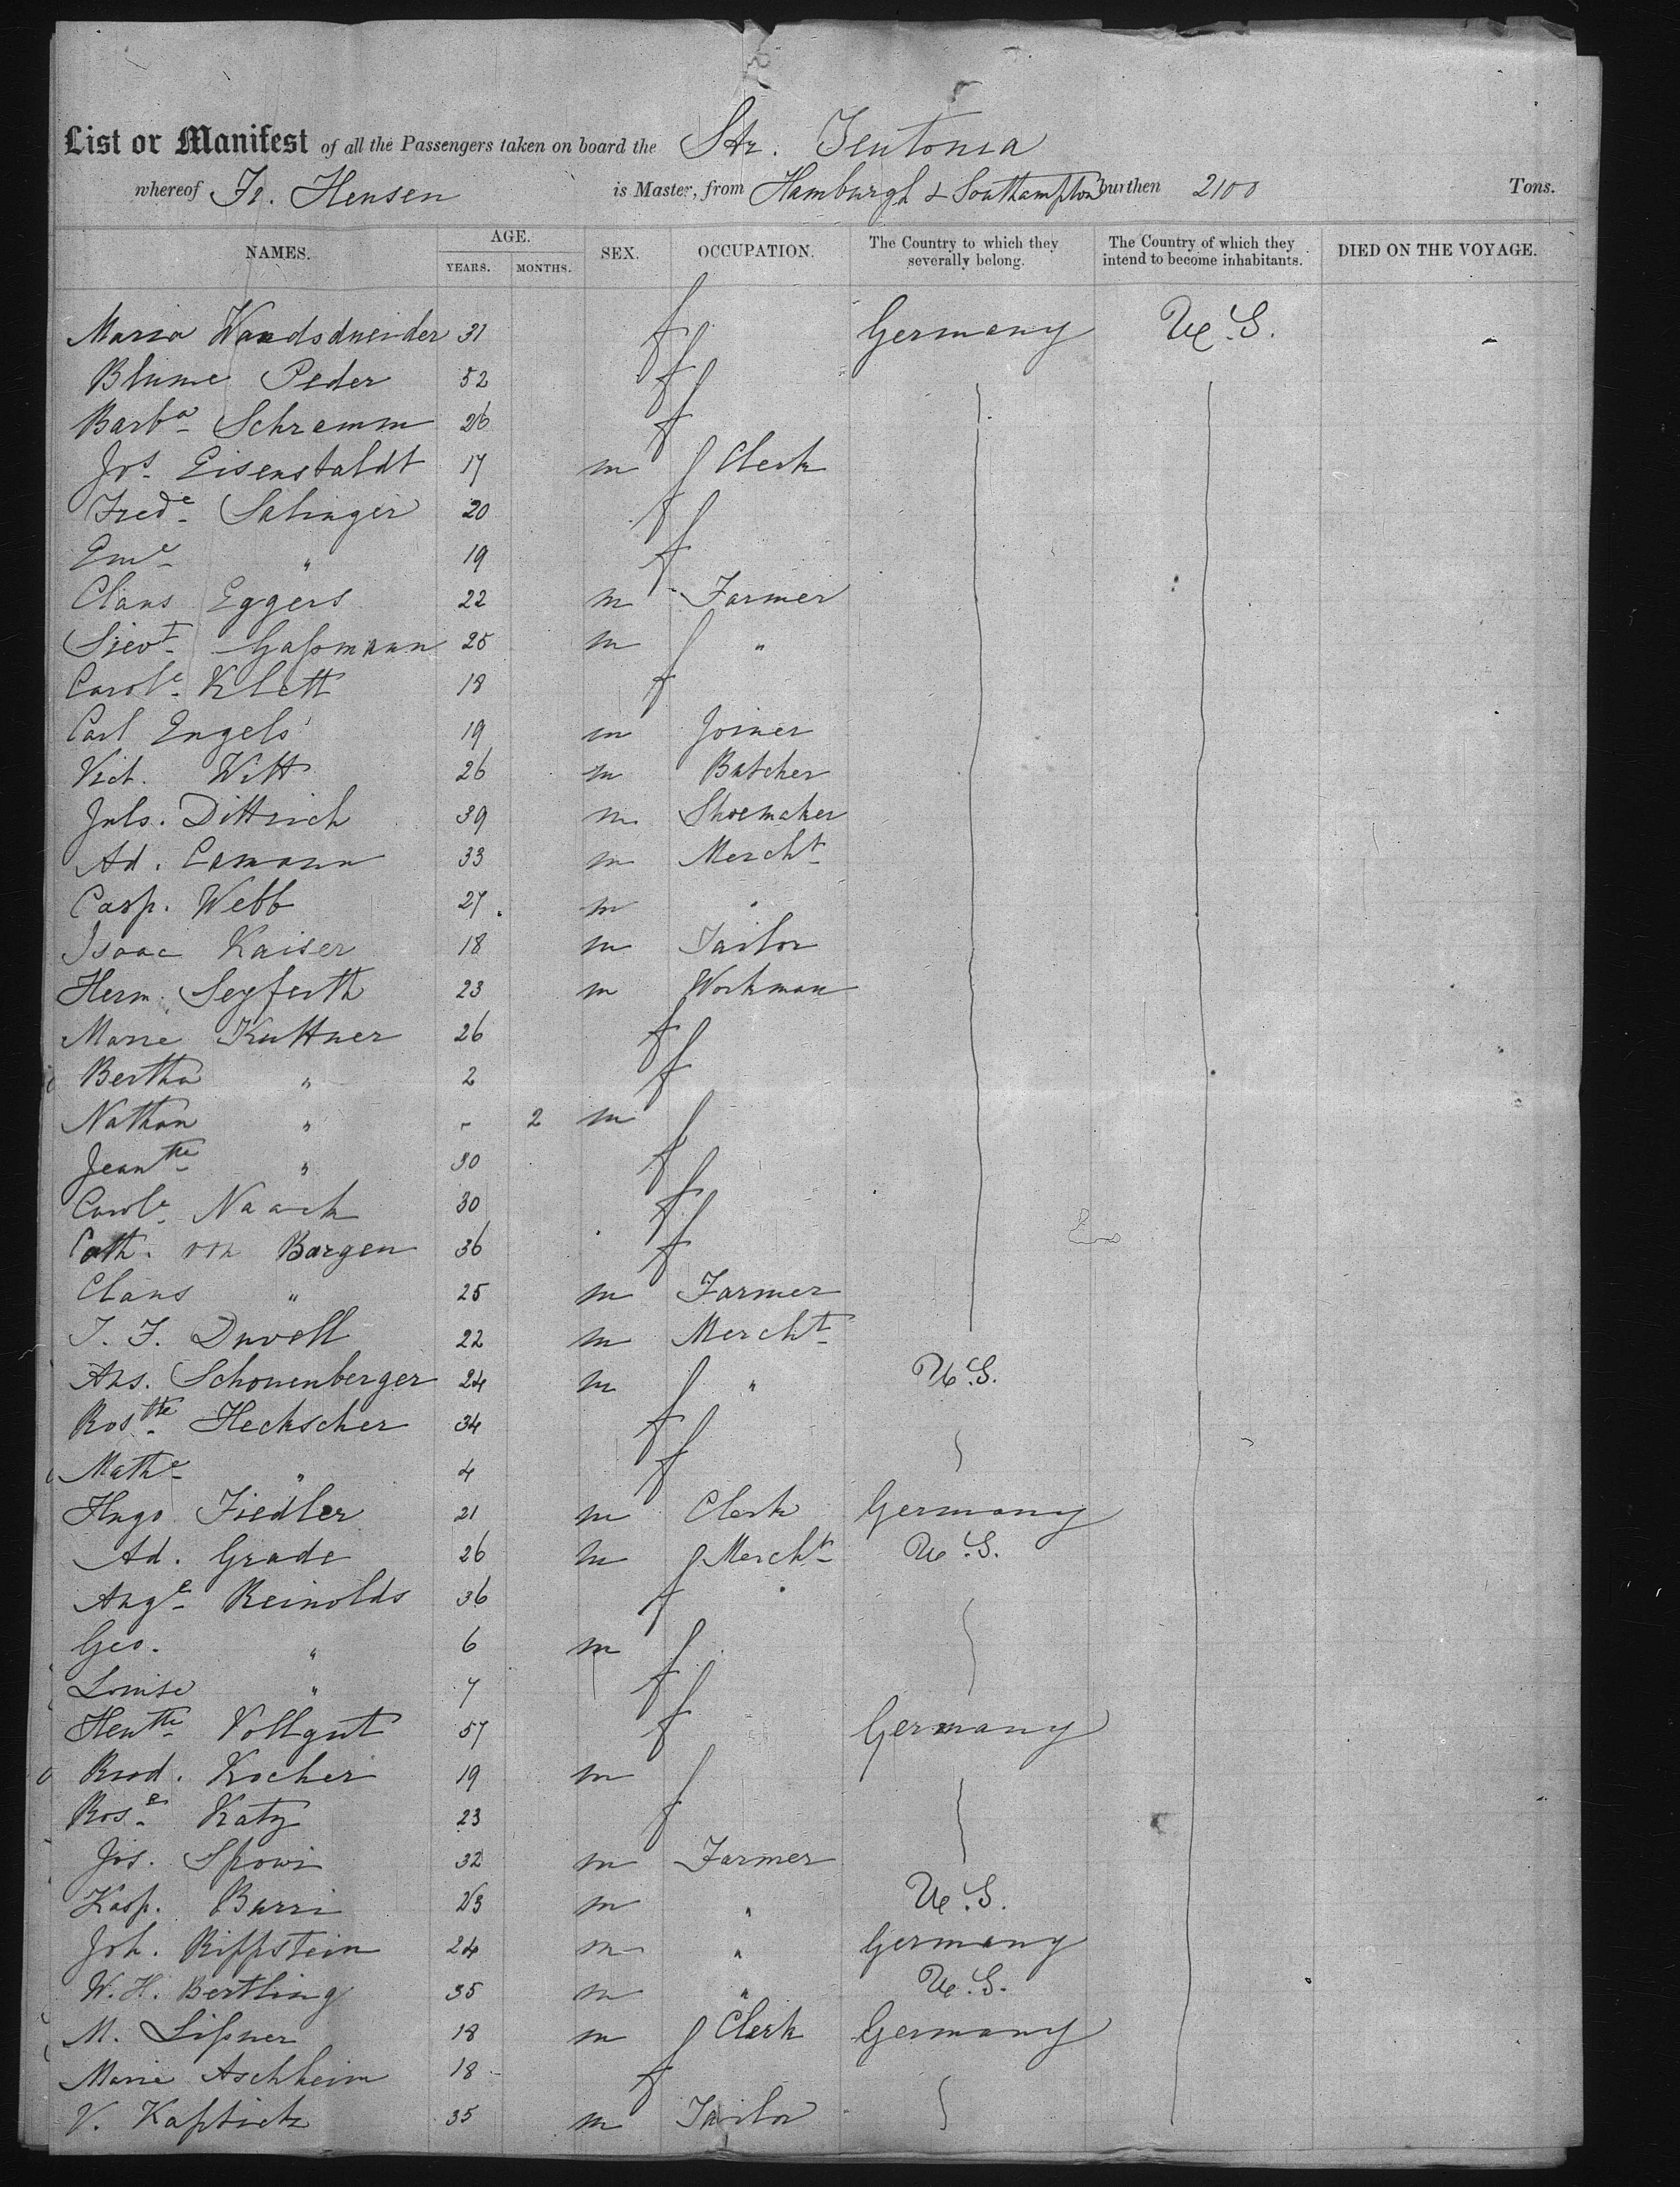 List or Manifest of all the Passengers taken on board the Str. Teutonia
whereof Fr. Hensen is Master, from Hamburgh & Southampton burthen 2100 Tons.
NAMES. AGE. YEARS. MONTHS. SEX. OCCUPATION. The Country to which they severally belong. The Country of which they intend to become inhabitants. DIED ON THE VOYAGE.
Maria Wandsdneider 31 f Germany U.S.
Blume Peder 52 f
Barba Schramm 26 f
Jos. Eisenstaldt 17 m Clerk
Frede Salinger 20 f
Eme " 19 f
Claus Eggers 22 m Farmer
Sievt Gaßmann 25 m "
Carole Klett 18 f
Carl Engels 19 m Joiner
Vict. Witt 26 m Butcher
Juls. Dittrich 39 m Shoemaker
Ad. 33 m Mercht
Casp. Webb 27 m "
Isaac Kaiser 18 m Tailor
Herm. Seyferth 23 m Workman
Marie Kuttner 26 f
Bertha " 2 f
Nathan " - 2 m
Jeantte " 30 f
Carole Naack 30 f
Cath. von Bargen 36 f
Claus " 25 m Farmer
J. F. Duvell 22 m Mercht
Ans. Schonenberger 24 m " U.S.
Rostte Heckscher 34 f
Mathe " 4 f
Hugo Fiedler 21 m Clerk Germany
Ad. Grade 26 m Mercht U.S.
Auge Reinolds 36 f
Geo. " 6 m
Louise " 7 f
Hentte Vollgut 57 f Germany
Rud. Kocher 19 m
Rose Katz 23 f
Jos. Spowi 32 m Farmer
Kasp. Burri 23 m " U.S.
Joh. Rippstein 24 m " Germany
W. H. Bertling 35 m " U.S.
M. Lißner 18 m Clerk Germany
Marie Aschheim 18 f
V. 35 m Tailor